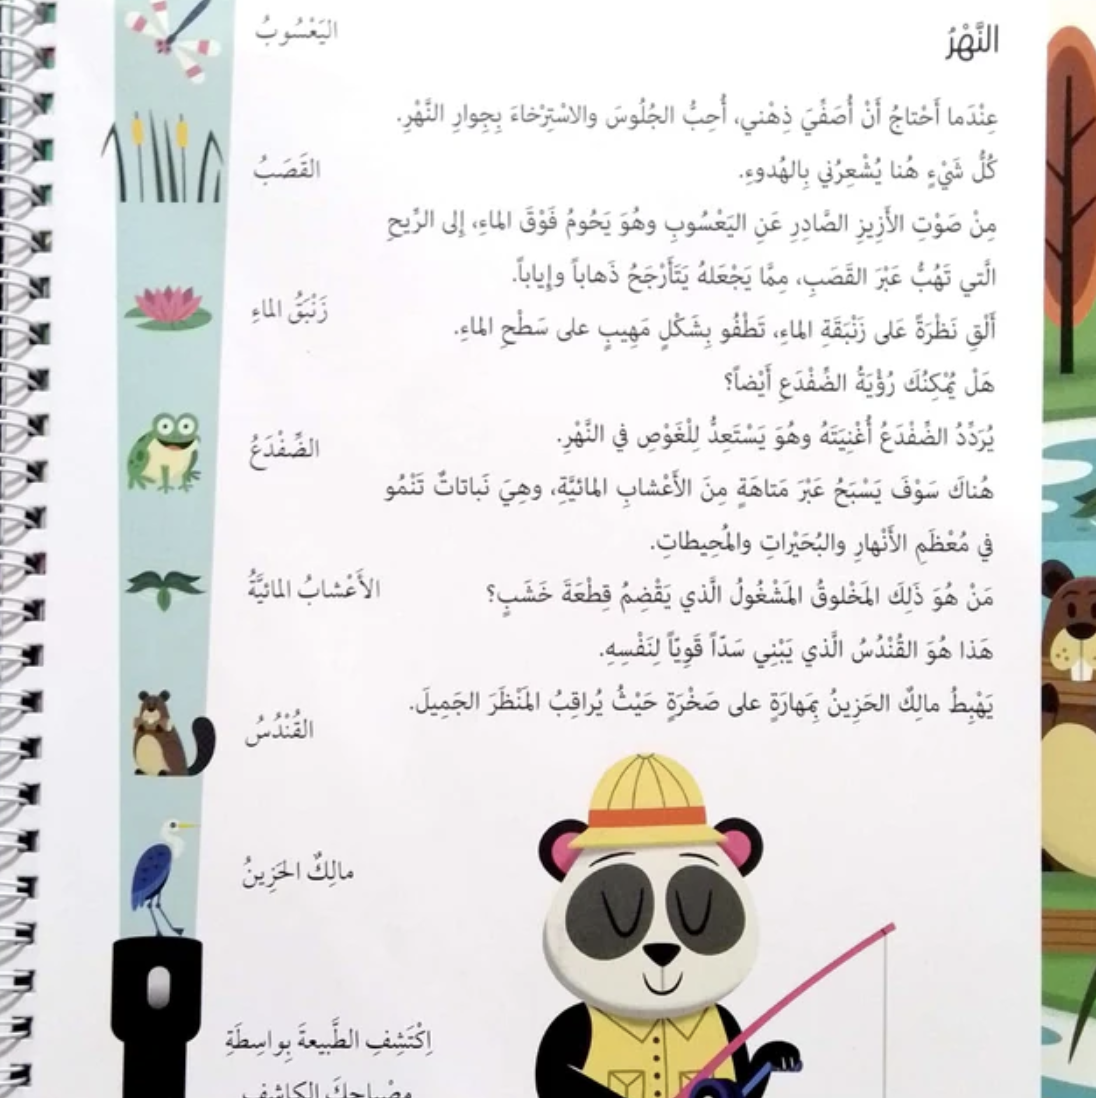 النَّهْرُ
عِنْدَما أَحْتاجُ أَنْ أُصَفِّيَ ذِهْني، أُحِبُّ الجُلُوسَ والاسْتِرْخاءَ بِجِوارِ النَّهْرِ.
كُلُّ شَيْءٍ هُنا يُشْعِرُني بِالهُدوءِ.
مِنْ صَوْتِ الأَزِيزِ الصَّادِرِ عَنِ اليَعْسُوبِ وهُوَ يَحُومُ فَوْقَ الماءِ، إِلى الرِّيحِ
الَّتي تَهُبُّ عَبْرَ القَصَبِ، مِمَّا يَجْعَلهُ يَتَأَرْجَحُ ذَهاباً وإِياباً.
أَلْقِ نَظْرَةً عَلى زَنْبَقَةِ الماءِ، تَطْفُو بِشَكْلٍ مَهِيبٍ على سَطْحِ الماءِ.
هَلْ يُمْكِنُكَ رُؤْيَةُ الضِّفْدَعِ أَيْضاً؟
يُرَدِّدُ الضِّفْدَعُ أُغْنِيَتَهُ وهُوَ يَسْتَعِدُّ لِلْغَوْصِ في النَّهْرِ.
هُناكَ سَوْفَ يَسْبَحُ عَبْرَ مَتاهَةٍ مِنَ الأَعْشابِ المائيَّةِ، وهِيَ نَباتاتٌ تَنْمُو
في مُعْظَمِ الأَنْهارِ والبُحَيْراتِ والمُحِيطاتِ.
مَنْ هُوَ ذَلِكَ المَخْلوقُ المَشْغُولُ الَّذي يَقْضِمُ قِطْعَةَ خَشَبٍ؟
هَذا هُوَ القُنْدُسُ الَّذي يَبْنِي سَدّاً قَوِيّاً لِنَفْسِهِ.
يَهْبِطُ مالِكٌ الحَزِينُ بِمَهارَةٍ على صَخْرَةٍ حَيْثُ يُراقِبُ المَنْظَرَ الجَمِيلَ.
اليَعْسُوبُ
القَصَبُ
زَنْبَقُ الماءِ
الضِّفْدَعُ
الأَعْشابُ المائيَّةُ
القُنْدُسُ
مالِكٌ الحَزِينُ
اِكْتَشِفِ الطَّبيعةَ بِواسِطَةِ
مِصْباحِكَ الكاشِفِ